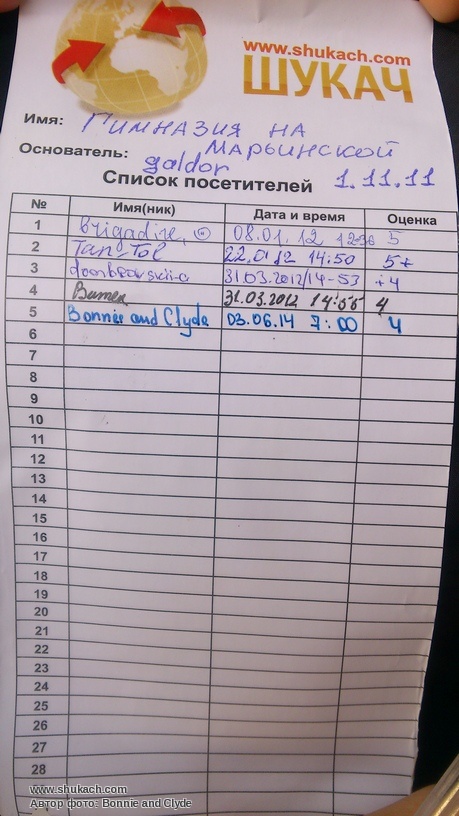 www.shukach.com
ШУКАЧ
Имя: Гимназия на
Марьинской
Основатель: galdor
Список посетителей 1.11.11
№ Имя(ник) Дата и время Оценка
1 Brigadire, 08.01.12 12-36 5
2 Tan-Tol 22.01.12 14:50 5+
3 31.03.2012/14-53 +4
4 31.03.2012 14:55 4
5 Bonnie and Clyde 03.06.14 7:00 4
6
7
8
9
10
11
12
13
14
15
16
17
18
19
20
21
22
23
24
25
26
27
28
www.shukach.com
Автор фото: Bonnie and Clyde